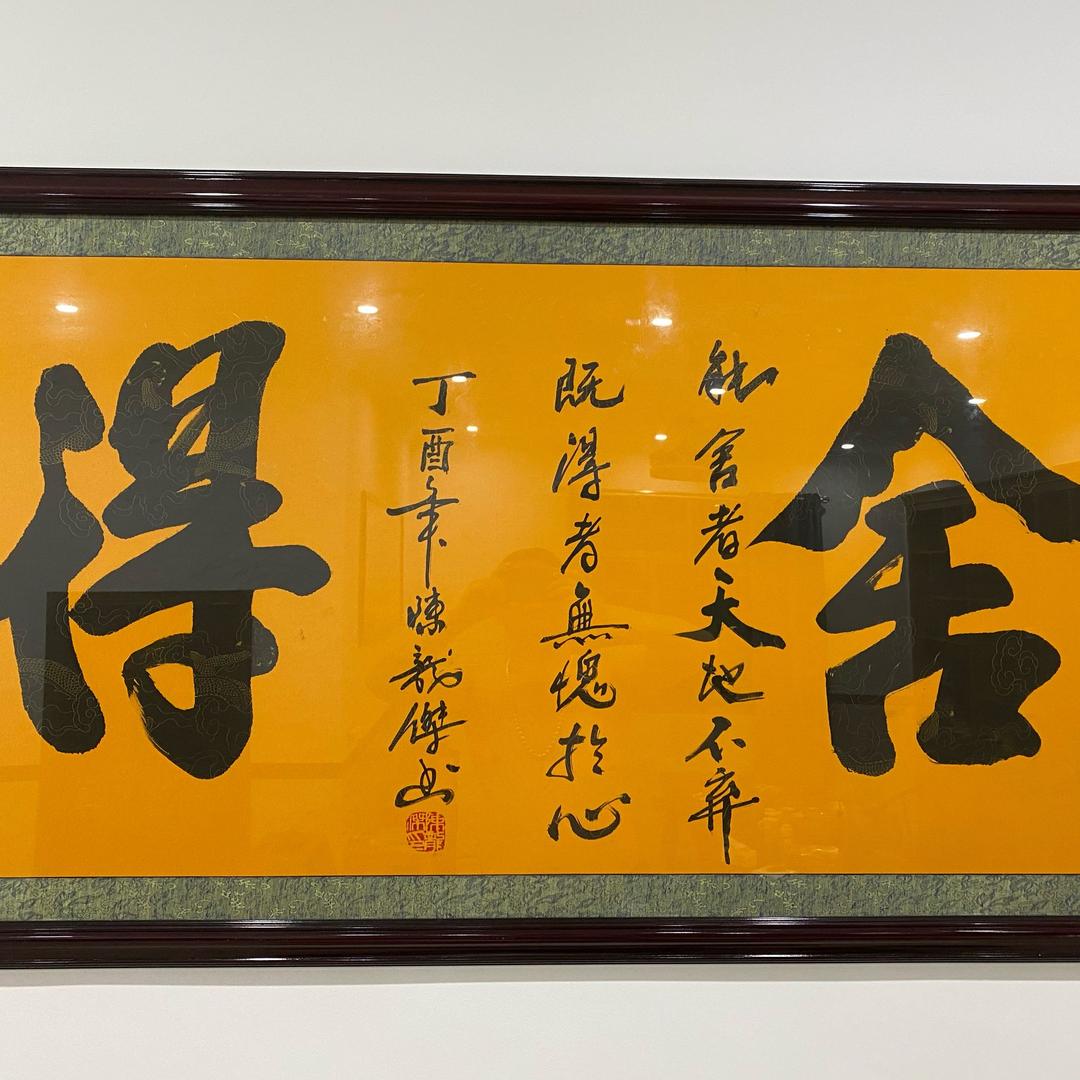 舍
能舍者天地不棄
既得者無愧於心
得
丁酉年陳龍傑書
陳龍傑印